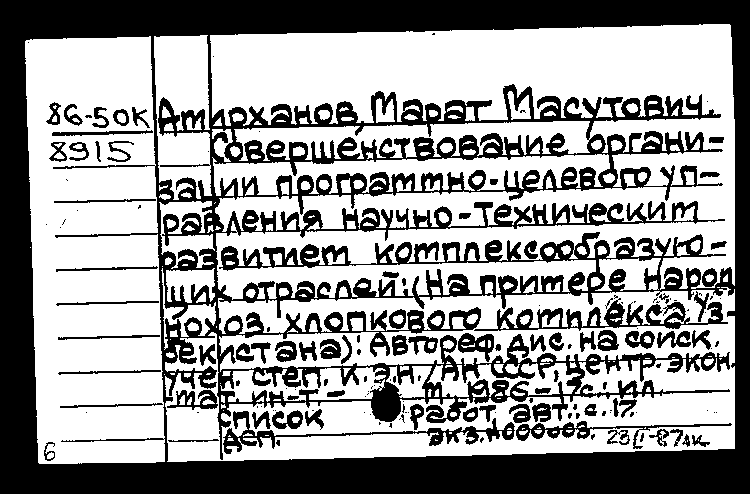 86-50К Амирханов, Марат Масутович.
8915 Совершенствование органи-
зации программно-целевого уп-
равления научно-техническим
развитием комплексообразую-
щих отраслей: (На примере народ
нохоз. хлопкового комплекса Уз-
бекистана): Автореф. дис. на соиск.
учен. степ. к.э.н. / АН СССР, центр. экон.
-мат. ин-т. - М., 1986. - 17с.: ил.
список работ авт.: с. 17.
Деп. экз. N000003. 23 II-87
6